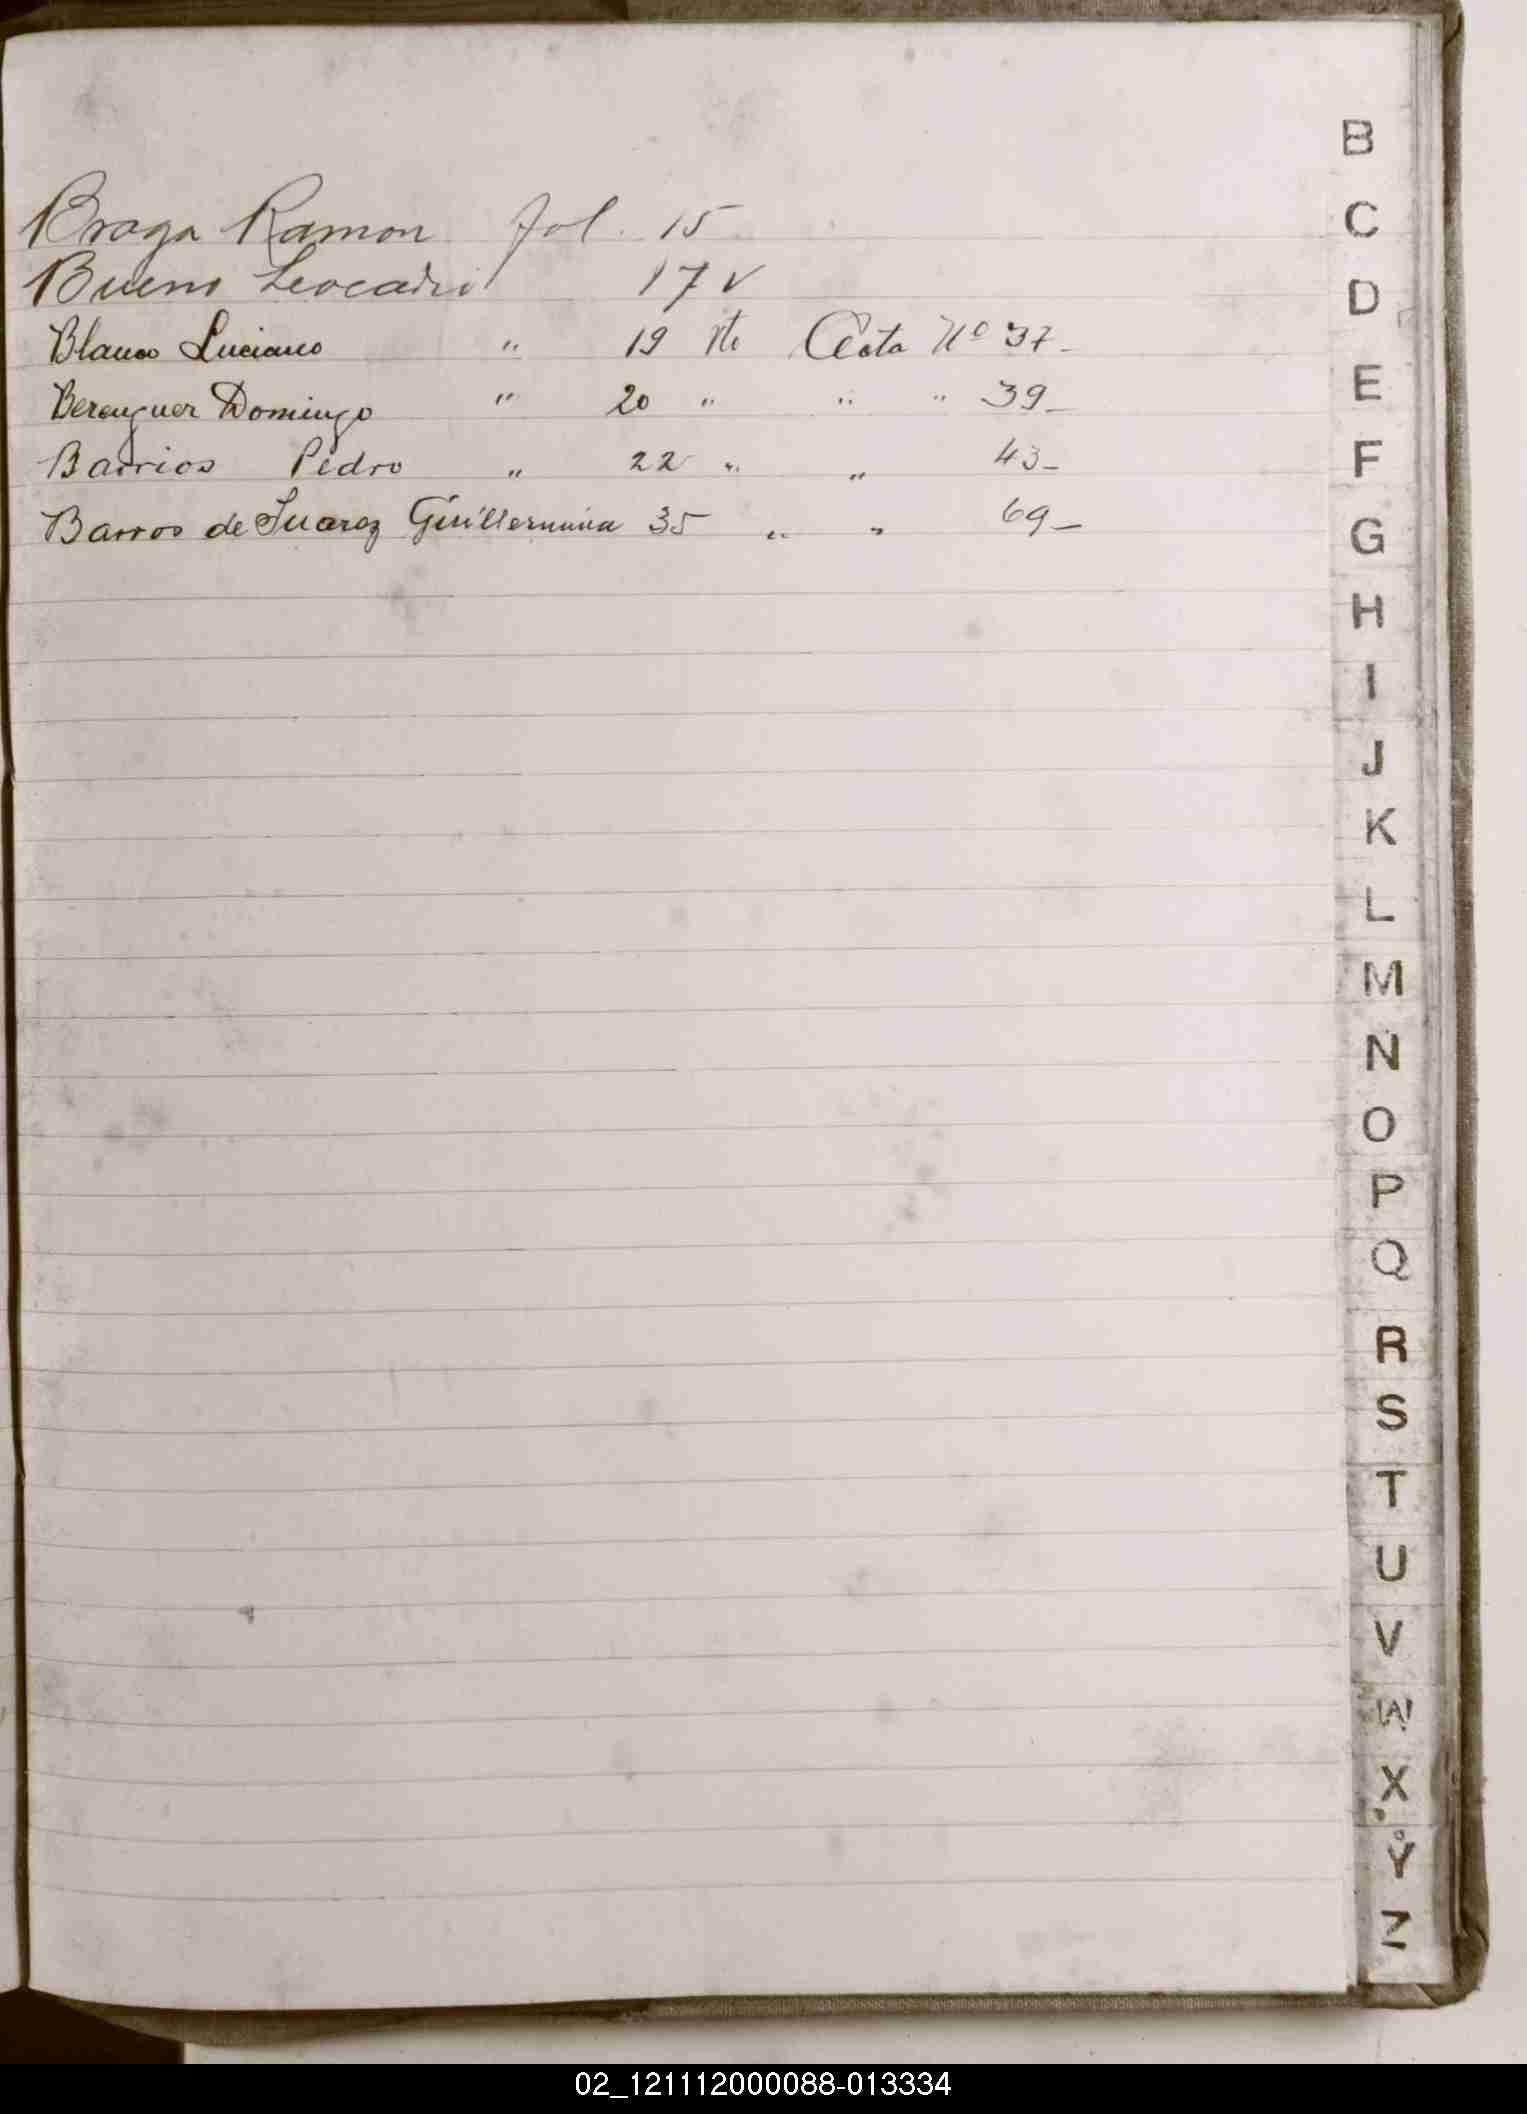 Braga Ramon fol. 15
Bueno Leocadio 17 v
Blanco Luciano " 19 vto Acta Nº 37-
Berenguer Domingo " 20 " " " 39-
Barrios Pedro " 22 " " 43-
Barros de Suarez Guillermina 35 " " 69-
B
C
D
E
F
G
H
I
J
K
L
M
N
O
P
Q
R
S
T
U
V
W
X
Y
Z
02_121112000088-013334